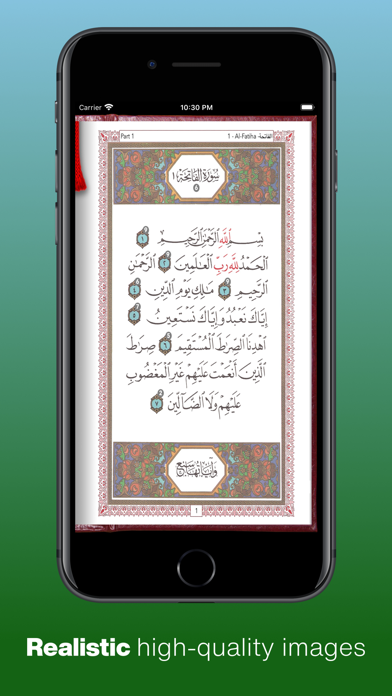 Carrier 10:30 PM
Part 1 1 - Al-Fatiha -الفاتحة
سُورَةُ الْفَاتِحَةِ ١
بِسْمِ اللَّهِ الرَّحْمَٰنِ الرَّحِيمِ ١
الْحَمْدُ لِلَّهِ رَبِّ الْعَالَمِينَ ٢ الرَّحْمَٰنِ
الرَّحِيمِ ٣ مَالِكِ يَوْمِ الدِّينِ ٤
إِيَّاكَ نَعْبُدُ وَإِيَّاكَ نَسْتَعِينُ ٥
اهْدِنَا الصِّرَاطَ الْمُسْتَقِيمَ ٦ صِرَاطَ
الَّذِينَ أَنْعَمْتَ عَلَيْهِمْ غَيْرِ الْمَغْضُوبِ
عَلَيْهِمْ وَلَا الضَّالِّينَ ٧
وَآيَاتُهَا سَبْعٌ
1
Realistic high-quality images